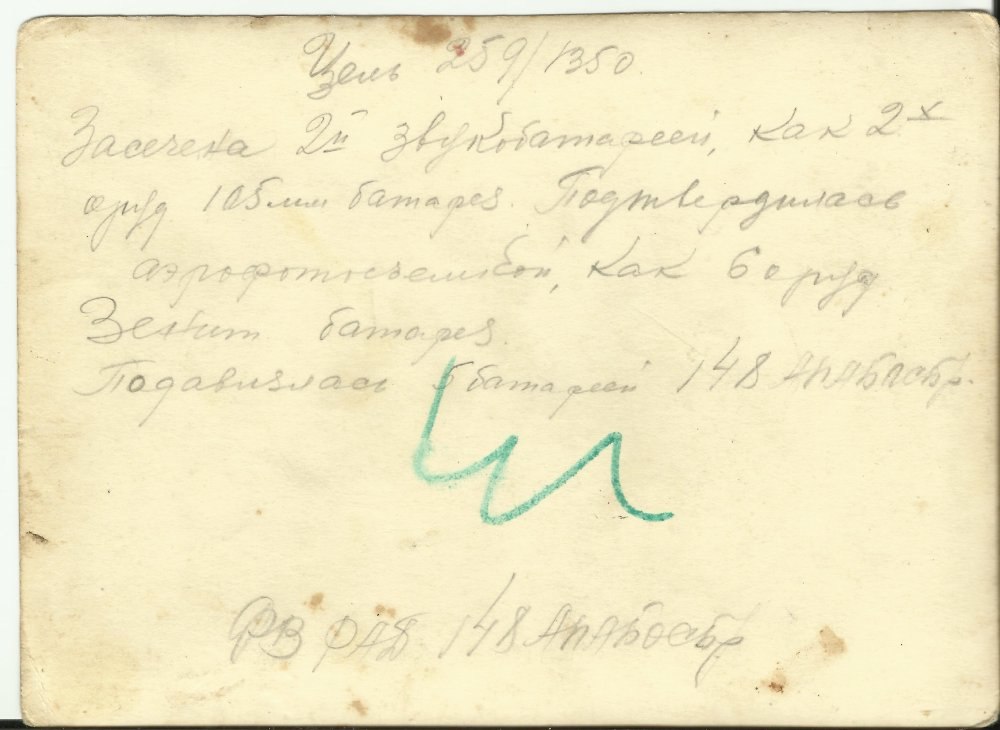 Цель 259/1350
Засечена 2й звукобатареей, как 2х
оруд 105мм батарея. Подтвердилась
аэрофотосъемкой, как 6 оруд
Зенит батарея.
Подавлялась 5 батареей 148
148